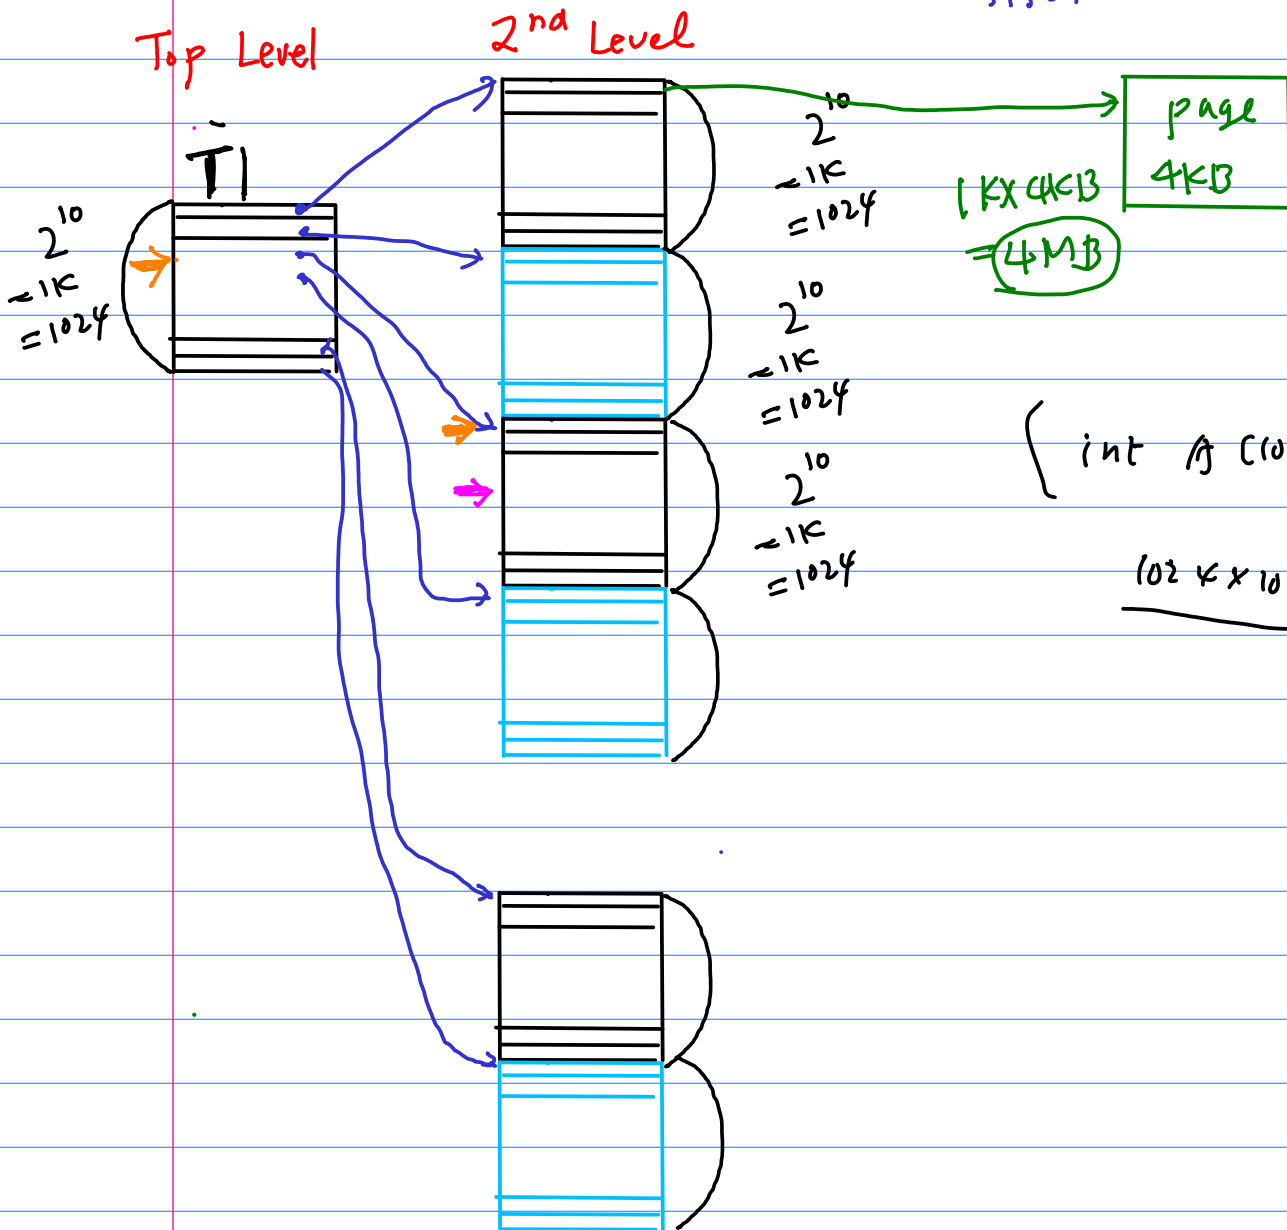 Top Level
2nd Level
T1
2^10
=1K
=1024
2^10
=1K
=1024
page
4KB
1K×4KB
=4MB
2^10
=1K
=1024
2^10
=1K
=1024
int A [10
1024 × 10